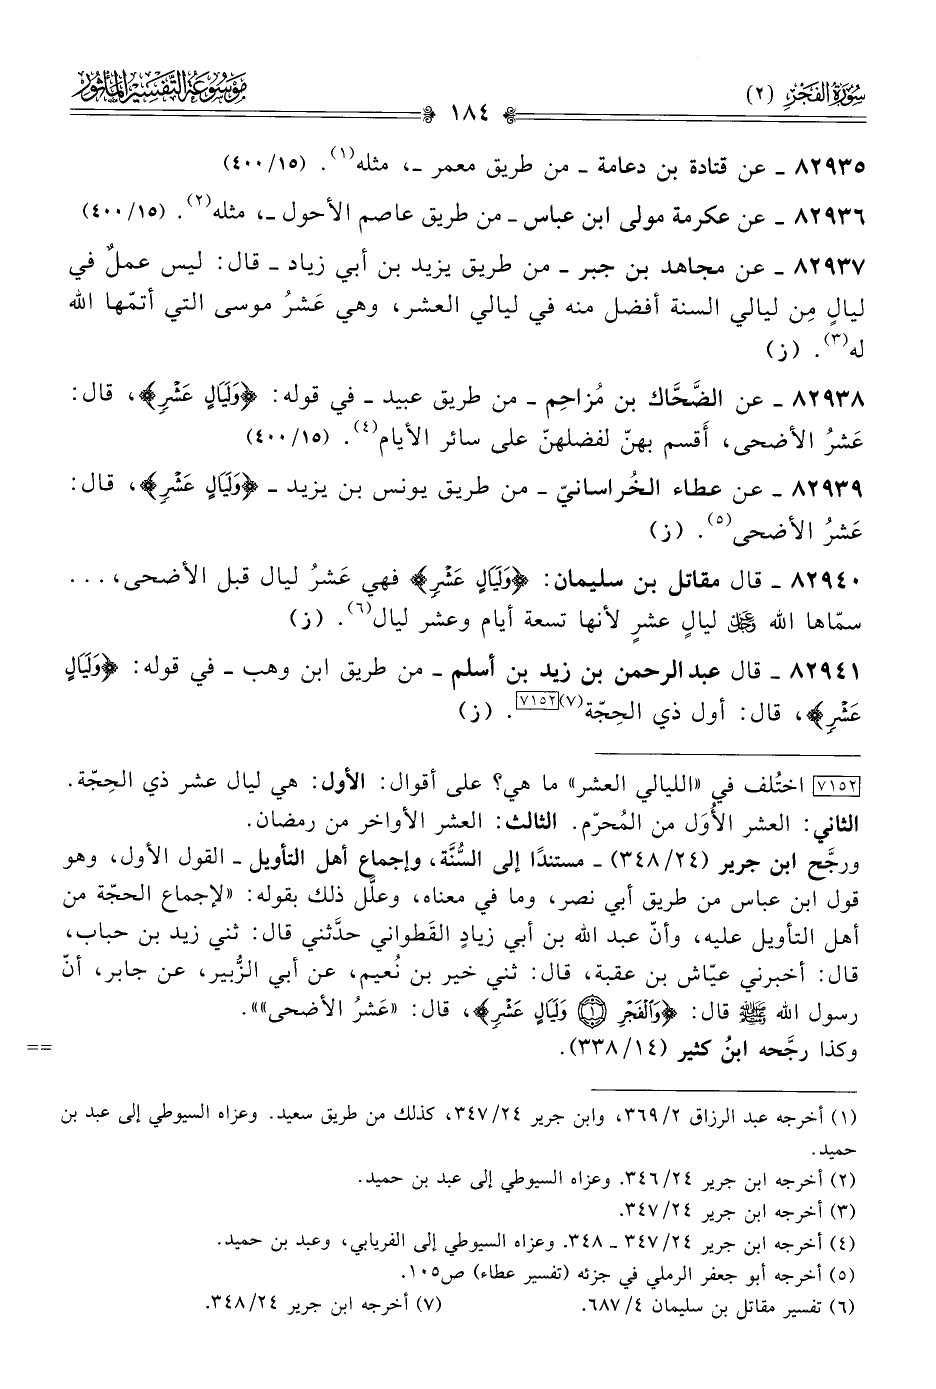 سُورَةُ الفَجْرِ (٢)
١٨٤
مَوْسُوعَة التَّفْسِيرِ المَأْثُور
٨٢٩٣٥ ـ عن قتادة بن دعامة ـ من طريق معمر ـ، مثله(١). (١٥/ ٤٠٠)
٨٢٩٣٦ ـ عن عكرمة مولى ابن عباس ـ من طريق عاصم الأحول ـ، مثله(٢). (١٥/ ٤٠٠)
٨٢٩٣٧ ـ عن مجاهد بن جبر ـ من طريق يزيد بن أبي زياد ـ قال: ليس عملٌ في
ليالٍ مِن ليالي السنة أفضل منه في ليالي العشر، وهي عَشرُ موسى التي أتمّها الله
له(٣). (ز)
٨٢٩٣٨ ـ عن الضَّحَّاك بن مُزاحِم ـ من طريق عبيد ـ في قوله: ﴿وَلَيَالٍ عَشْرٍ﴾، قال:
عَشرُ الأضحى، أَقسم بهنّ لفضلهنّ على سائر الأيام(٤). (١٥/ ٤٠٠)
٨٢٩٣٩ ـ عن عطاء الخُراسانيّ ـ من طريق يونس بن يزيد ـ ﴿وَلَيَالٍ عَشْرٍ﴾، قال:
عَشرُ الأضحى(٥). (ز)
٨٢٩٤٠ ـ قال مقاتل بن سليمان: ﴿وَلَيَالٍ عَشْرٍ﴾ فهي عَشرُ ليال قبل الأضحى، ...
سمّاها الله ﷿ ليالٍ عشرٍ لأنها تسعة أيام وعشر ليال(٦). (ز)
٨٢٩٤١ ـ قال عبد الرحمن بن زيد بن أسلم ـ من طريق ابن وهب ـ في قوله: ﴿وَلَيَالٍ
عَشْرٍ﴾، قال: أول ذي الحِجّة(٧)[٧١٥٢]. (ز)
[٧١٥٢] اختُلف في «الليالي العشر» ما هي؟ على أقوال: الأول: هي ليال عشر ذي الحِجّة.
الثاني: العشر الأُوَل من المُحرّم. الثالث: العشر الأواخر من رمضان.
ورجَّح ابن جرير (٢٤/ ٣٤٨) ـ مستندًا إلى السُّنَّة، وإجماع أهل التأويل ـ القول الأول، وهو
قول ابن عباس من طريق أبي نصر، وما في معناه، وعلَّل ذلك بقوله: «لإجماع الحجّة من
أهل التأويل عليه، وأنّ عبد الله بن أبي زيادٍ القَطواني حدَّثني قال: ثني زيد بن حباب،
قال: أخبرني عيّاش بن عقبة، قال: ثني خير بن نُعيم، عن أبي الزُّبير، عن جابر، أنّ
رسول الله ﷺ قال: ﴿وَٱلْفَجْرِ ۝١ وَلَيَالٍ عَشْرٍ﴾، قال: «عَشرُ الأضحى»».
وكذا رجَّحه ابنُ كثير (١٤/ ٣٣٨).
==
(١) أخرجه عبد الرزاق ٢/ ٣٦٩، وابن جرير ٢٤/ ٣٤٧، كذلك من طريق سعيد. وعزاه السيوطي إلى عبد بن
حميد.
(٢) أخرجه ابن جرير ٢٤/ ٣٤٦. وعزاه السيوطي إلى عبد بن حميد.
(٣) أخرجه ابن جرير ٢٤/ ٣٤٧.
(٤) أخرجه ابن جرير ٢٤/ ٣٤٧ ـ ٣٤٨. وعزاه السيوطي إلى الفريابي، وعبد بن حميد.
(٥) أخرجه أبو جعفر الرملي في جزئه (تفسير عطاء) ص١٠٥.
(٦) تفسير مقاتل بن سليمان ٤/ ٦٨٧. (٧) أخرجه ابن جرير ٢٤/ ٣٤٨.